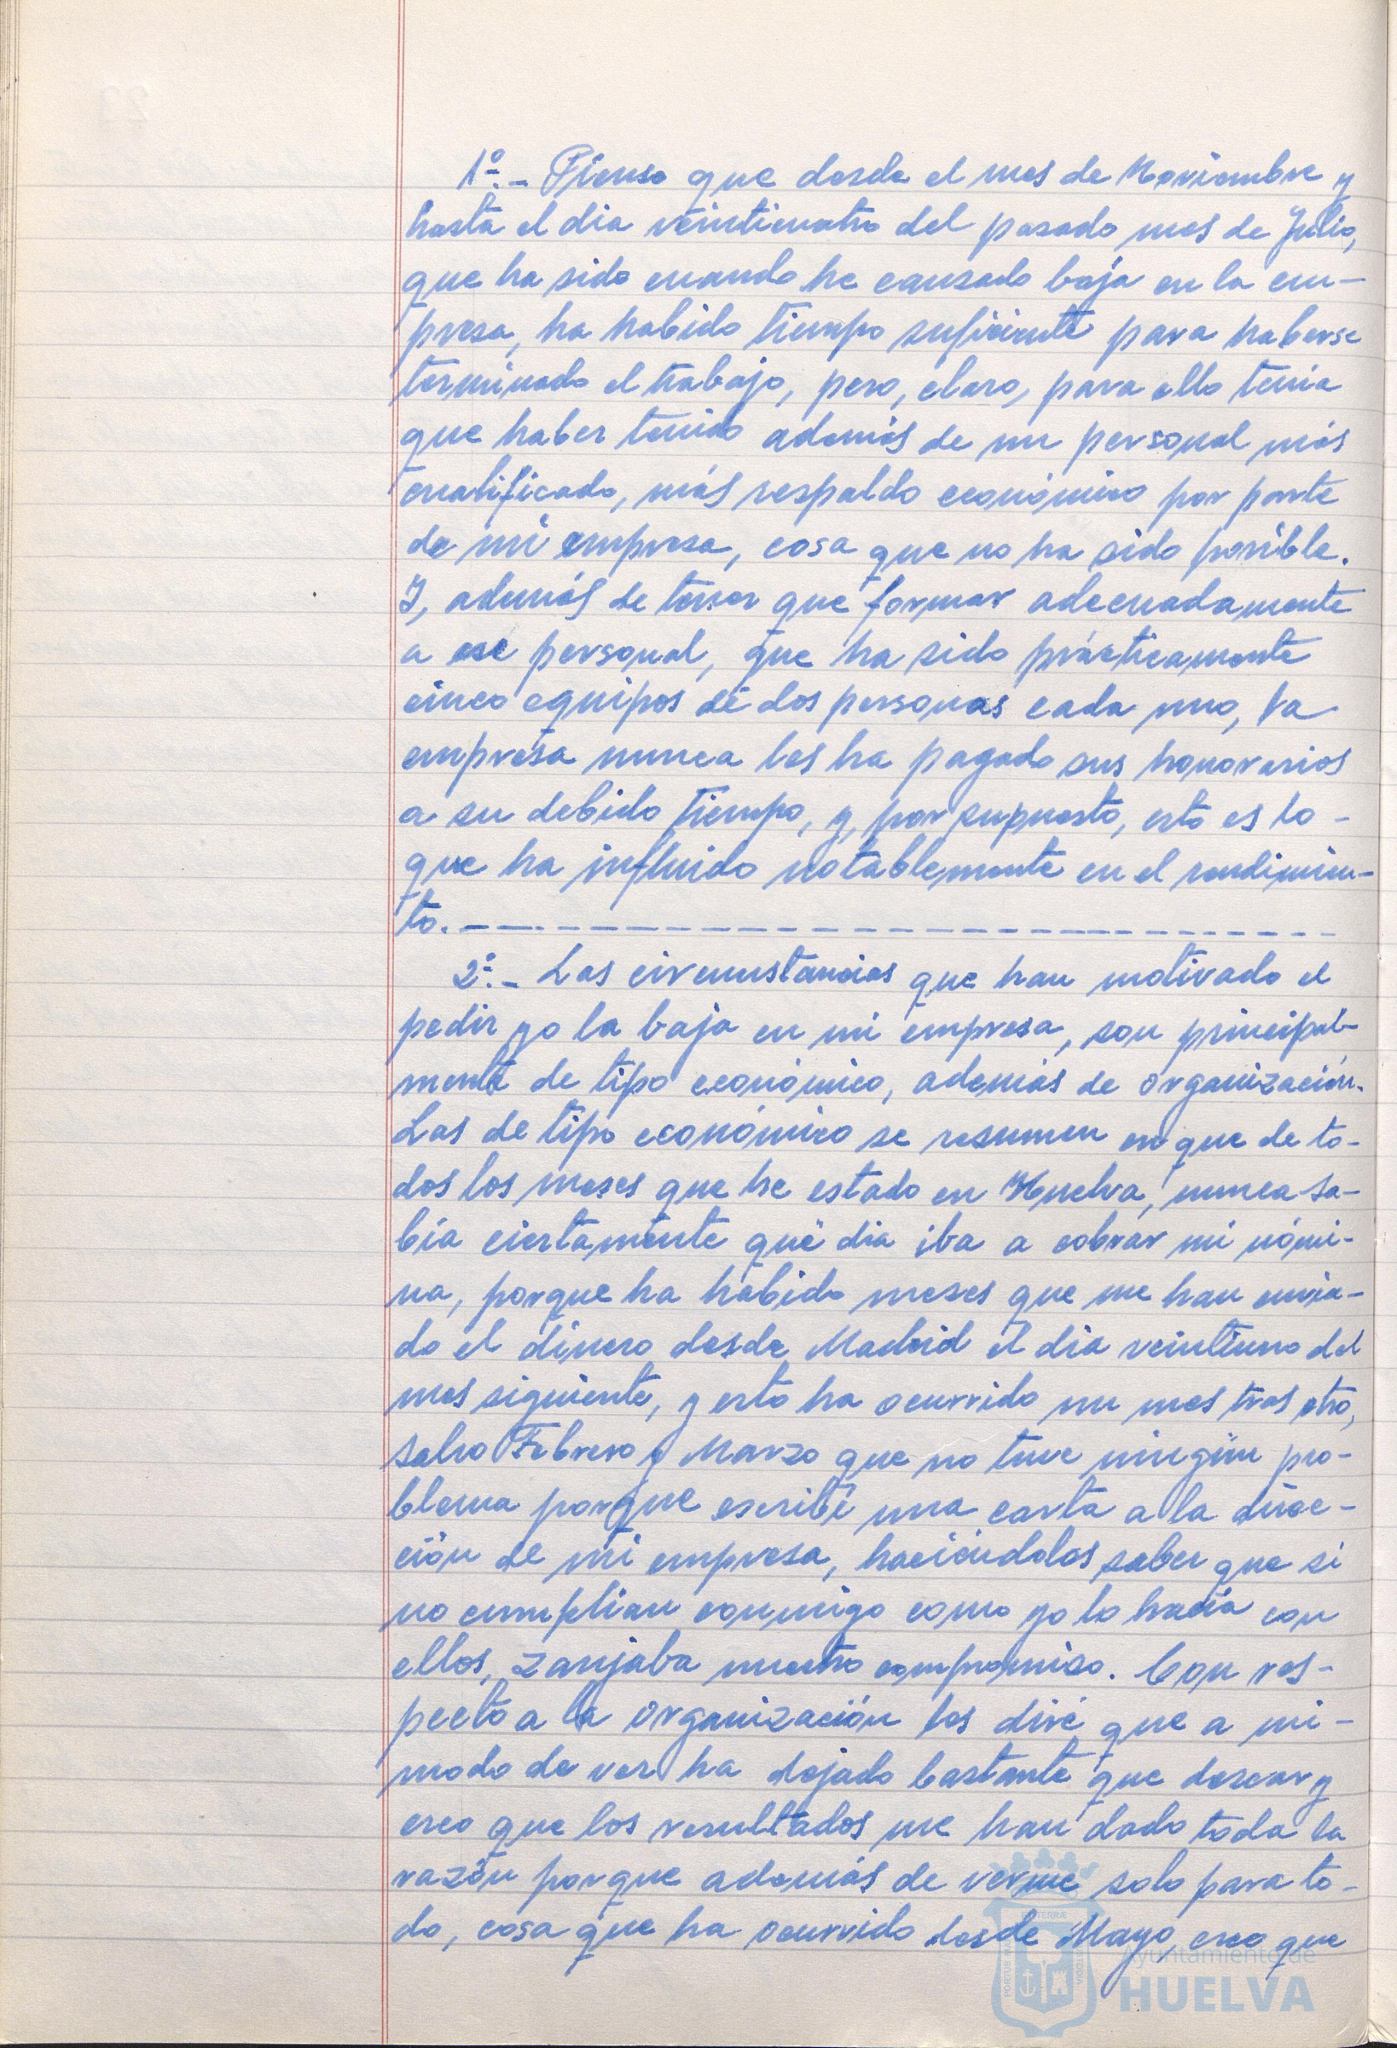 1º.- Pienso que desde el mes de Noviembre y
hasta el dia veinticuatro del pasado mes de Julio,
que ha sido cuando he causado baja en la em-
presa, ha habido tiempo suficiente para haberse
terminado el trabajo, pero, claro, para ello tenia
que haber tenido además de un personal más
cualificado, más respaldo económico por parte
de mi empresa, cosa que no ha sido posible.
Y, además de tener que formar adecuadamente
a ese personal, que ha sido prácticamente
cinco equipos de dos personas cada uno, la
empresa nunca les ha pagado sus honorarios
a su debido tiempo, y, por supuesto, esto es lo-
que ha influido notablemente en el rendimien-
to.
2º.- Las circunstancias que han motivado el
pedir yo la baja en mi empresa, son principal-
mente de tipo económico, además de organización.
Las de tipo económico se resumen en que de to-
dos los meses que he estado en Huelva, nunca sa-
bía ciertamente qué dia iba a cobrar mi nómi-
na, porque ha habido meses que me han envia-
do el dinero desde Madrid el dia veintiuno del
mes siguiente, y esto ha ocurrido un mes tras otro,
salvo Febrero y Marzo que no tuve ningún pro-
blema porque escribí una carta a la direc-
ción de mi empresa, haciéndolos saber que si
no cumplian conmigo como yo lo hacía con
ellos, zanjaba nuestro compromiso. Con res-
pecto a la organización les diré que a mi-
modo de ver ha dejado bastante que desear y
creo que los resultados me han dado toda la
razón porque además de verme solo para to-
do, cosa que ha ocurrido desde Mayo creo que
Ayuntamiento de
HUELVA